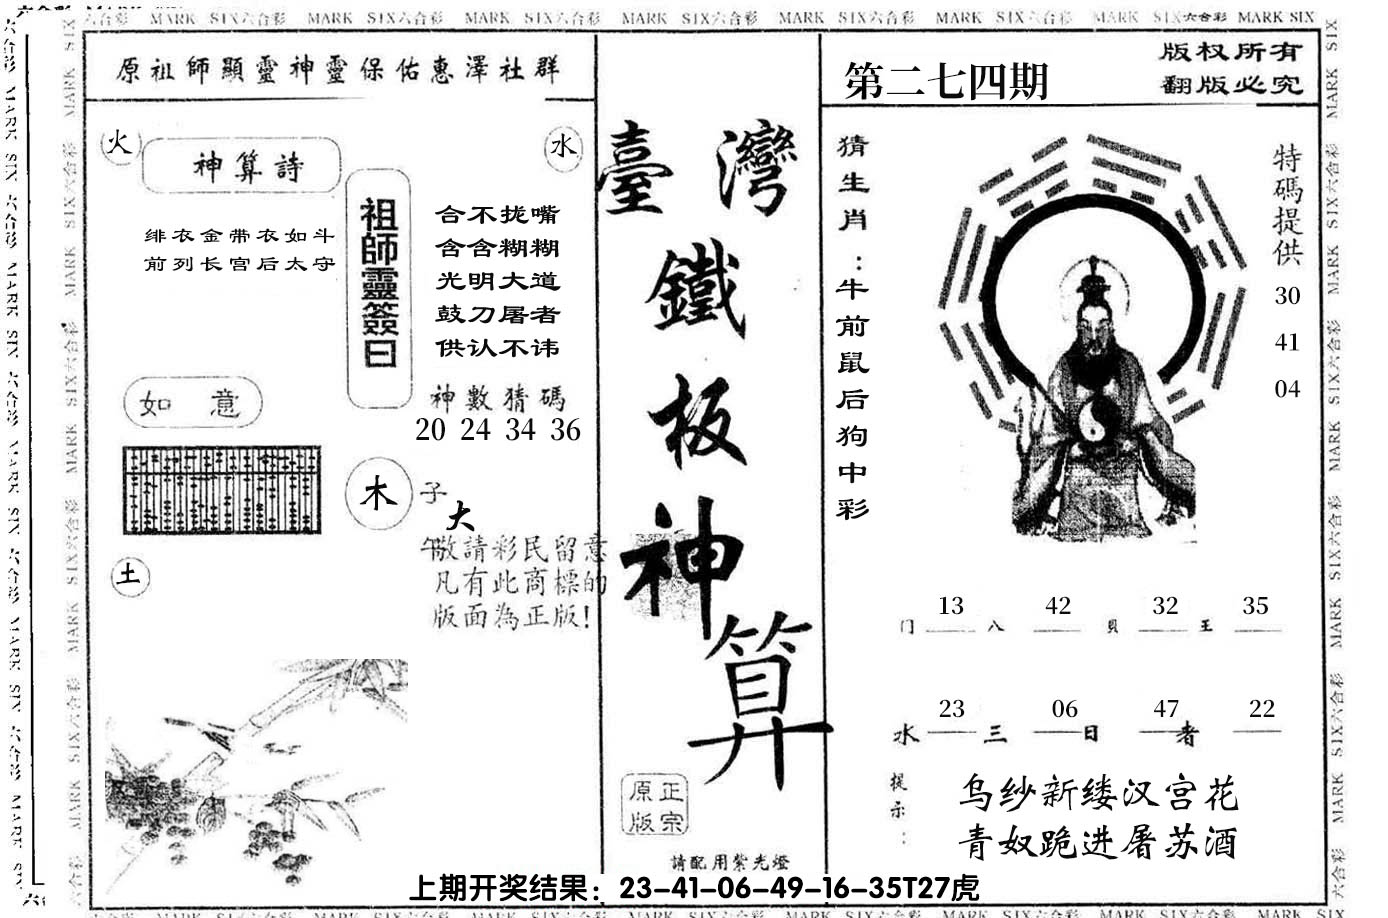 MARK SIX六合彩 MARK SIX六合彩 MARK SIX六合彩 MARK SIX六合彩 MARK SIX六合彩 MARK SIX六合彩 MARK SIX六合彩 MARK SIX
原祖師顯靈神靈保佑惠澤社群
火
水
神算詩
绯衣金带衣如斗
前列长宫后太守
祖師靈簽曰
合不拢嘴
含含糊糊
光明大道
鼓刀屠者
供认不讳
神數猜碼
20 24 34 36
如 意
木
子
大
午
敬請彩民留意
凡有此商標的
版面為正版!
土
臺灣
鐵
板
神
算
正宗
原版
請配用紫光燈
第二七四期
版权所有
翻版必究
猜生肖：牛前鼠后狗中彩
特碼提供
30
41
04
13 42 32 35
门 八 貝 王
23 06 47 22
水 三 日 者
提示：
乌纱新缕汉宫花
青奴跪进屠苏酒
上期开奖结果：23-41-06-49-16-35T27虎